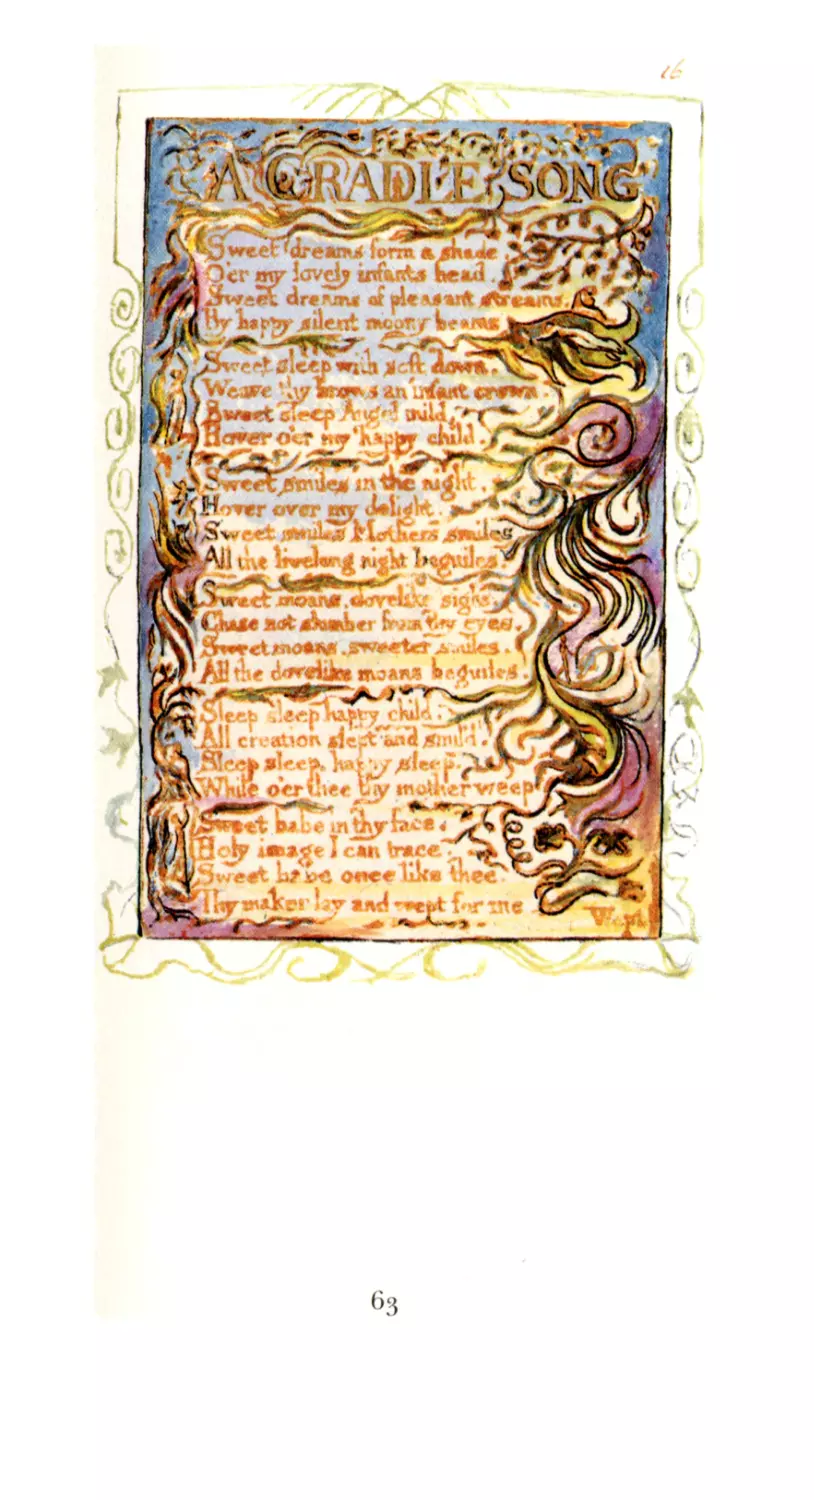 16
A CRADLE SONG
Sweet dreams form a shade
O'er my lovely infants head.
Sweet dreams of pleasant streams.
By happy silent moony beams
Sweet sleep with soft down.
Weave thy brows an infant crown.
Sweet sleep Angel mild,
Hover o'er my happy child.
Sweet smiles in the night
Hover over my delight.
Sweet smiles Mothers smiles
All the livelong night beguiles.
Sweet moans, dovelike sighs
Chase not slumber from thy eyes.
Sweet moans, sweeter smiles.
All the dovelike moans beguiles.
Sleep sleep happy child.
All creation slept and smil'd.
Sleep sleep, happy sleep.
While o'er thee thy mother weep
Sweet babe in thy face.
Holy image I can trace.
Sweet babe once like thee.
Thy maker lay and wept for me
Wept
63